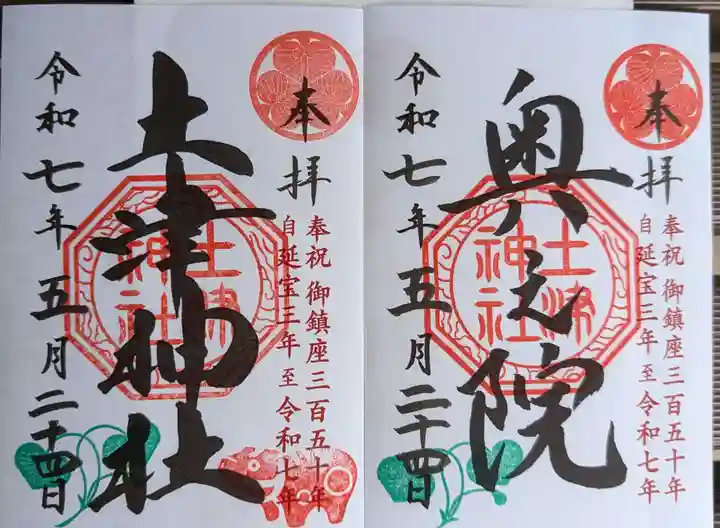 奉拝
奉祝 御鎮座三百五十年
自 延宝三年 至 令和七年
土津神社
土津
神社
令和七年五月二十四日
奉拝
奉祝 御鎮座三百五十年
自 延宝三年 至 令和七年
奥之院
土津
神社
令和七年五月二十四日